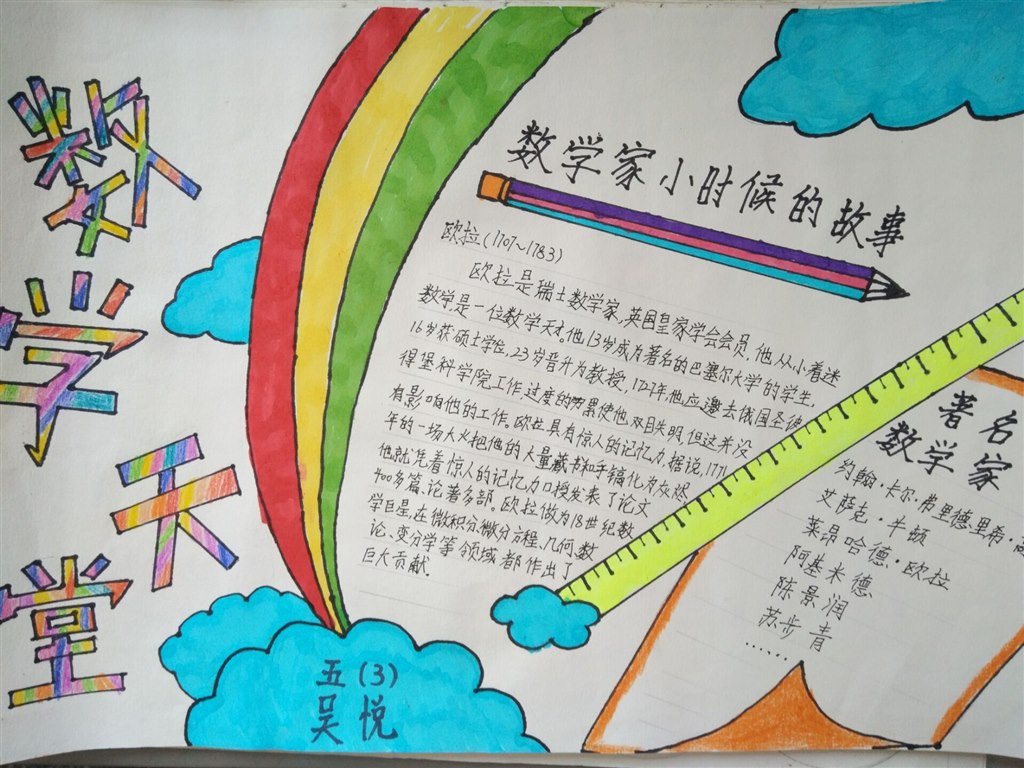 数学天堂
数学家小时候的故事
欧拉(1707~1783)
欧拉是瑞士数学家,英国皇家学会会员,他从小着迷
数学,是一位数学天才。他13岁成为著名的巴塞尔大学的学生,
16岁获硕士学位,23岁晋升为教授,1727年他应邀去俄国圣彼
得堡科学院工作,过度的劳累使他双目失明,但这并没
有影响他的工作。欧拉具有惊人的记忆力,据说,1771
年的一场大火把他的大量藏书和手稿化为灰烬
他就凭着惊人的记忆力口授发表了论文
400多篇、论著多部。欧拉做为18世纪数
学巨星,在微积分,微分方程、几何、数
论、变分学等领域都作出了
巨大贡献.
著名
数学家
约翰·卡尔·弗里德里希·高
艾萨克·牛顿
莱昂哈德·欧拉
阿基米德
陈景润
苏步青
……
五(3)
吴悦